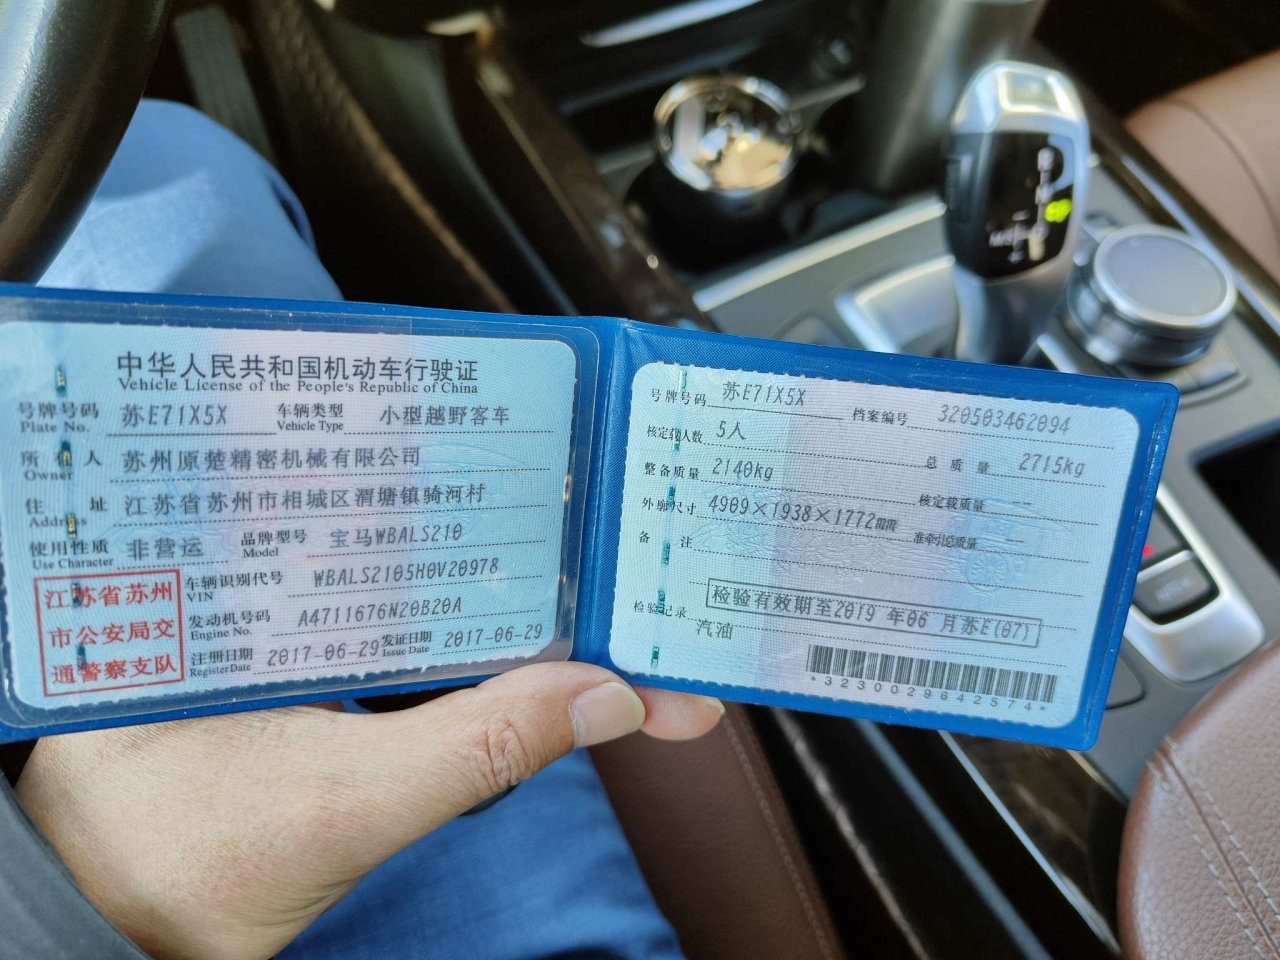 中华人民共和国机动车行驶证
Vehicle License of the People's Republic of China
号牌号码 苏E71X5X 车辆类型 小型越野客车
Plate No. Vehicle Type
所有人 苏州原楚精密机械有限公司
Owner
住址 江苏省苏州市相城区渭塘镇骑河村
Address
使用性质 非营运 品牌型号 宝马WBALS210
Use Character Model
江苏省苏州
市公安局交
通警察支队
车辆识别代号 WBALS2105H0V20978
VIN
发动机号码 A4711676N20B20A
Engine No.
注册日期 2017-06-29 发证日期 2017-06-29
Register Date Issue Date
号牌号码 苏E71X5X 档案编号 320503462094
核定载人数 5人 总质量 2715kg
整备质量 2140kg 核定载质量 --
外廓尺寸 4909×1938×1772mm 准牵引总质量 --
备注
检验有效期至2019 年06 月苏E(07)
检验记录
汽油
*3230029642574*